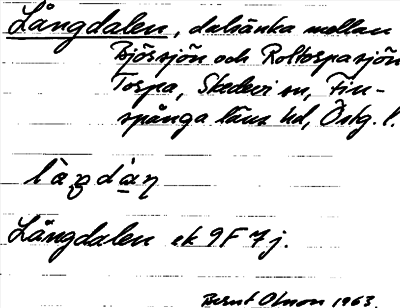 Långdalen, dalsänka mellan
Björsjön och Roltorpasjön
Torpa, Skedevi sn, Fin-
spånga läns hd, Östg. l.
Långdalen ek 9F 7j.
Bernt Olsson 1963.